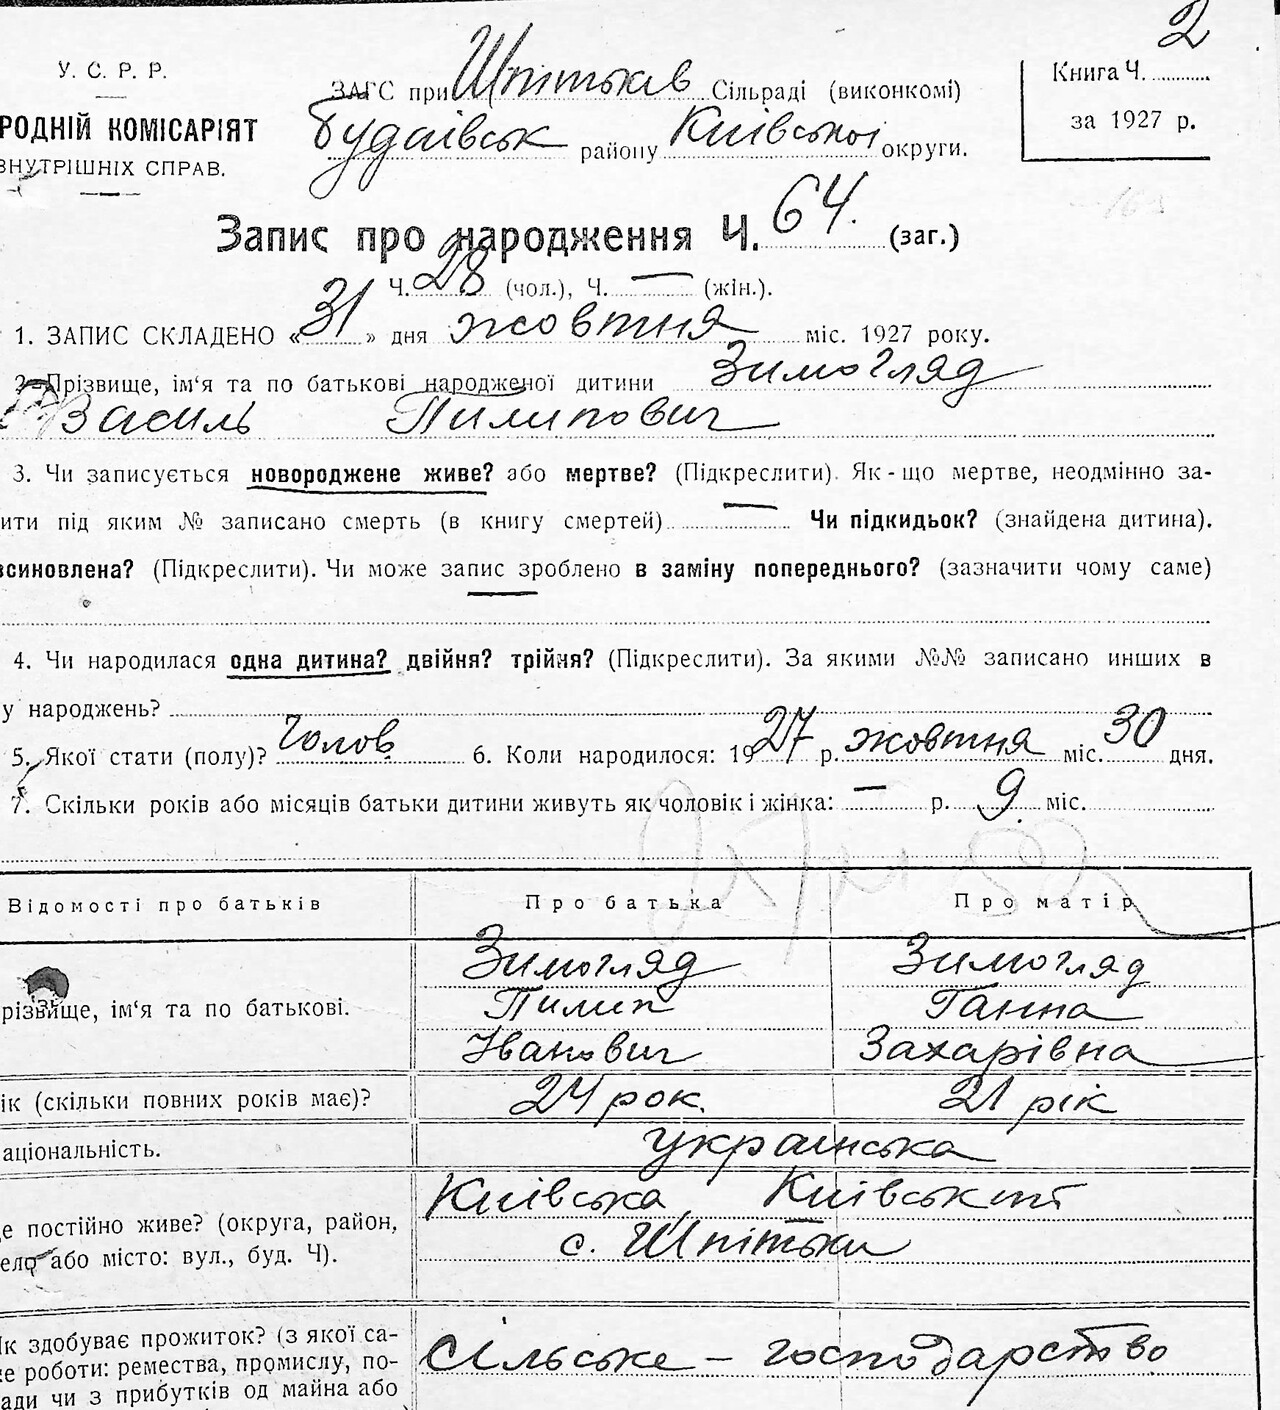 2
У. С. Р. Р.
РОДНІЙ КОМІСАРІЯТ
ВНУТРІШНІХ СПРАВ.
ЗАГС при Шпітьків Сільраді (виконкомі)
Будаівськ району Київської округи.
Книга Ч.
за 1927 р.
Запис про народження Ч. 64. (заг.)
Ч. 28 (чол.), Ч. — (жін.).
1. ЗАПИС СКЛАДЕНО «31» дня жовтня міс. 1927 року.
2. Прізвище, ім'я та по батькові народженої дитини Зимогляд
Василь Пилипович
3. Чи записується новороджене живе? або мертве? (Підкреслити). Як-що мертве, неодмінно за-
ити під яким № записано смерть (в книгу смертей) — Чи підкидьок? (знайдена дитина).
всиновлена? (Підкреслити). Чи може запис зроблено в заміну попереднього? (зазначити чому саме)
4. Чи народилася одна дитина? двійня? трійня? (Підкреслити). За якими №№ записано инших в
у народжень?
5. Якої стати (полу)? Чолов. 6. Коли народилося: 1927 р. жовтня міс. 30 дня.
7. Скільки років або місяців батьки дитини живуть як чоловік і жінка: — р. 9 міс.
Відомості про батьків Про батька Про матір
Зимогляд Зимогляд
різвище, ім'я та по батькові. Пилип Ганна
Іванович Захарівна
ік (скільки повних років має)? 24 рок. 21 рік
аціональність. українська
Київська Київськ
е постійно живе? (округа, район, с. Шпітьки
ело або місто: вул., буд. Ч).
Як здобуває прожиток? (з якої са-
ме роботи: ремества, промислу, по- Сільське – господарство
ади чи з прибутків од майна або